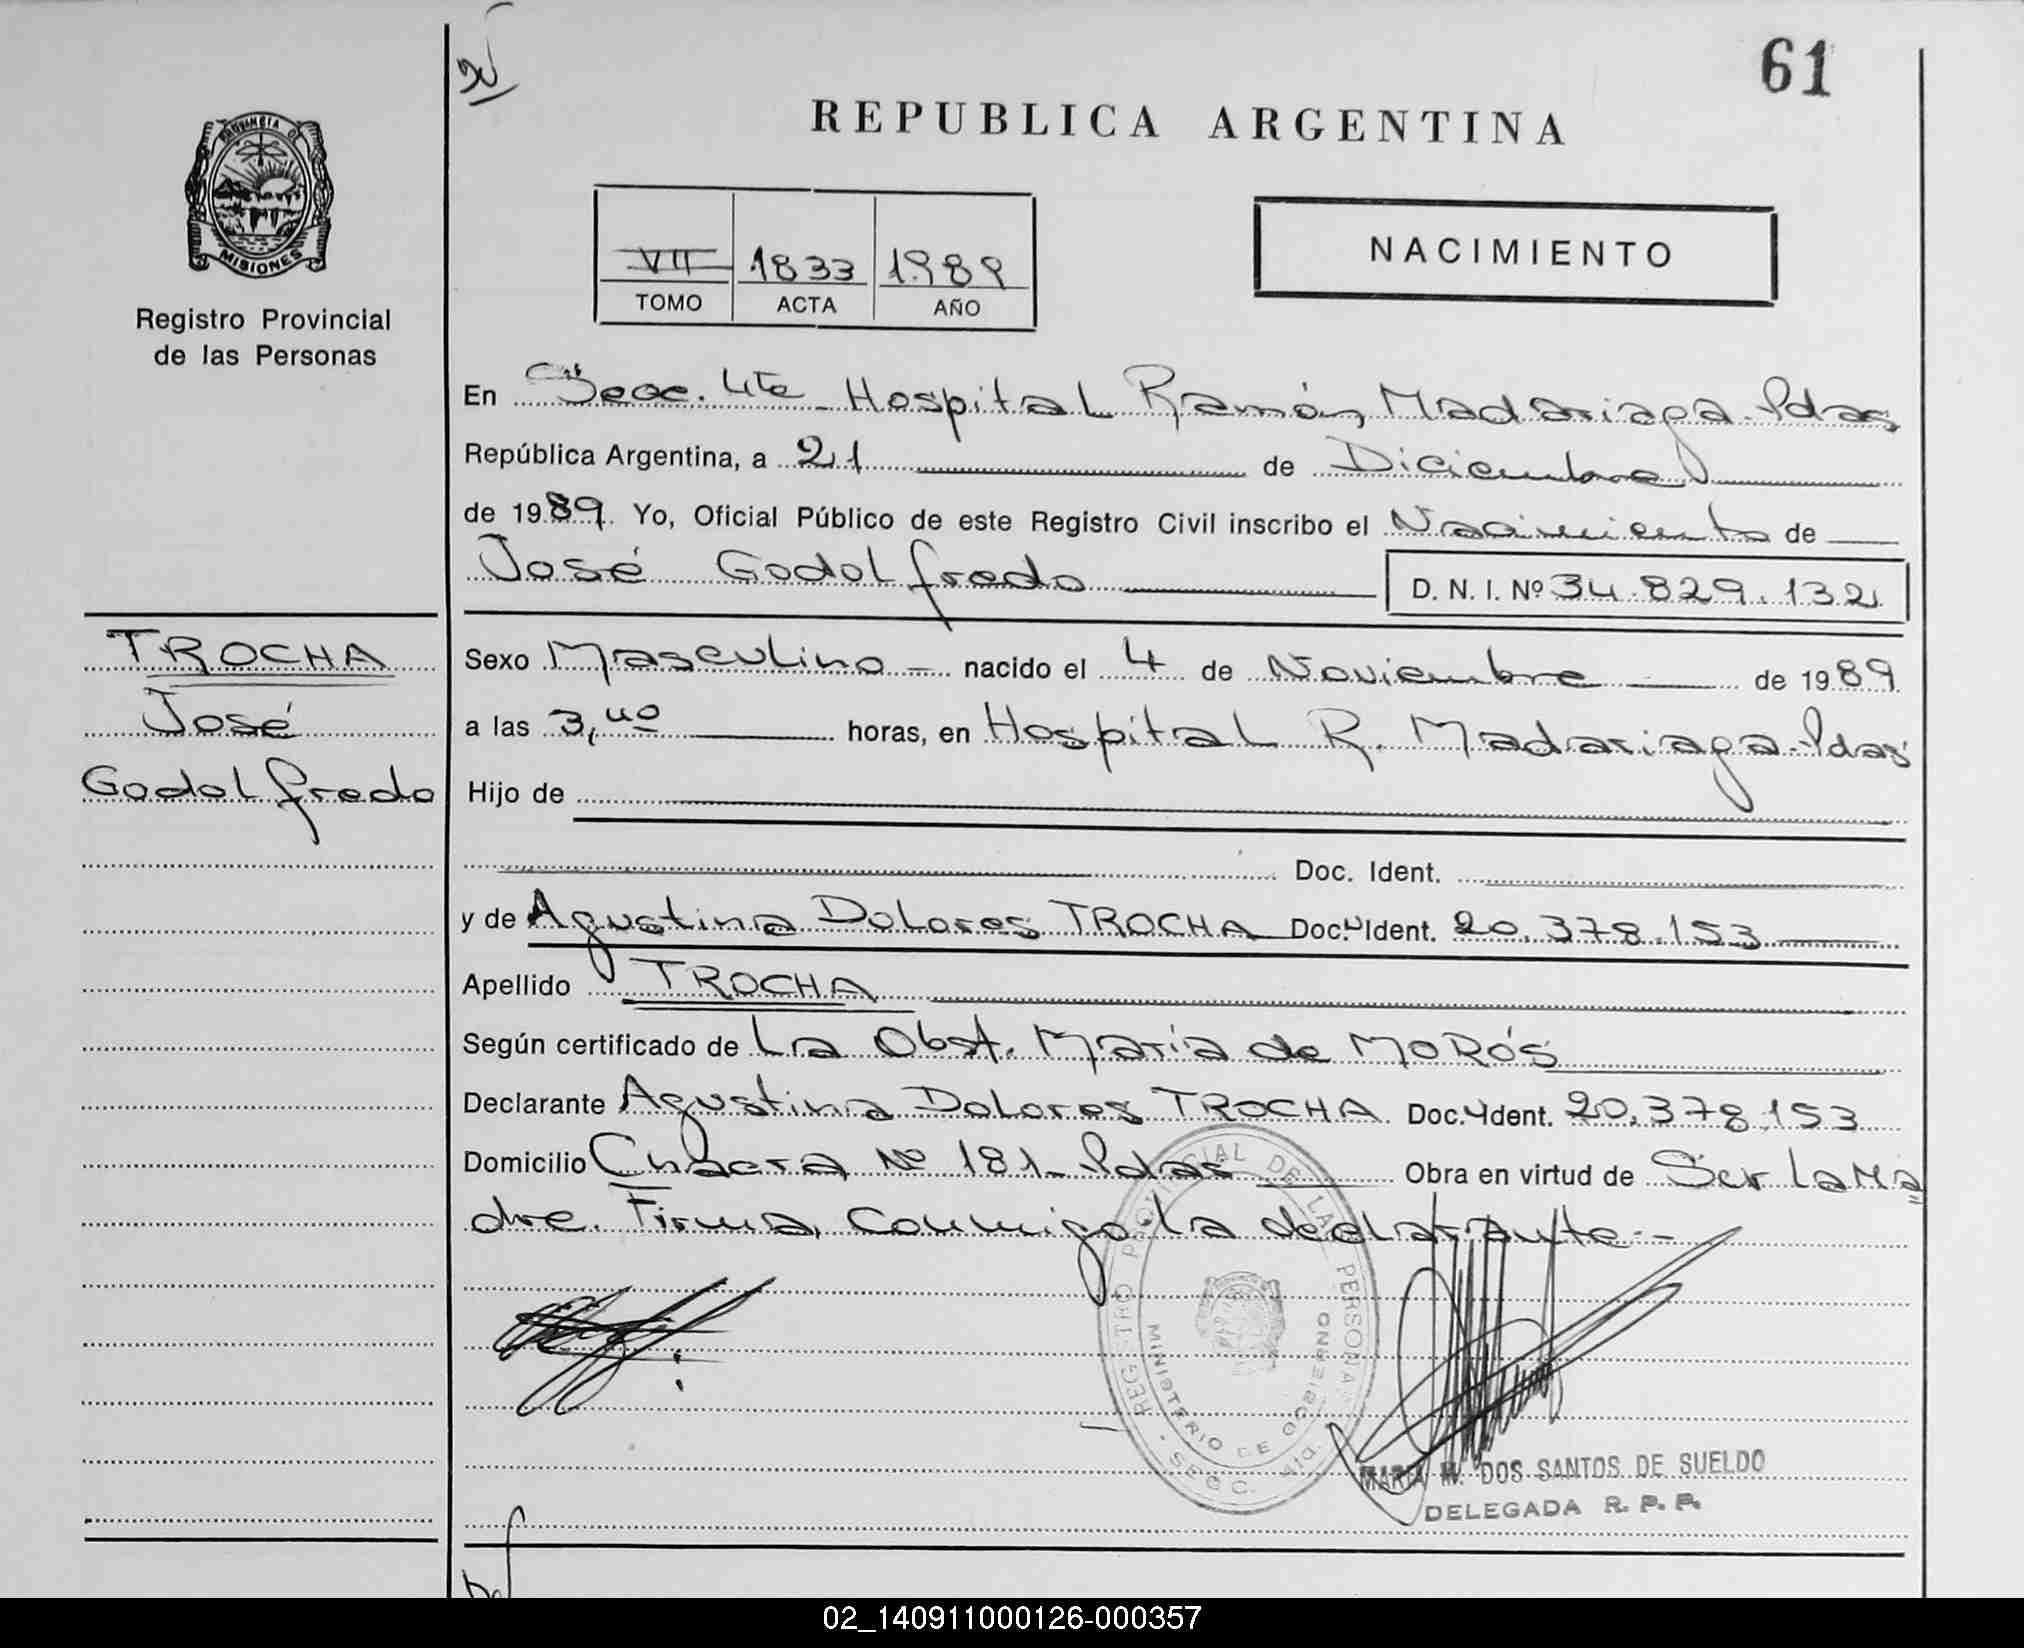 61
REPUBLICA ARGENTINA
PROVINCIA DE
MISIONES
Registro Provincial
de las Personas
VII 1833 1989
TOMO ACTA AÑO
NACIMIENTO
En Secc. 4ta Hospital Ramón Madariaga-Pdas
República Argentina, a 21 de Diciembre
de 1989. Yo, Oficial Público de este Registro Civil inscribo el Nacimiento de
José Godolfredo D. N. I. Nº 34.829.132
TROCHA
José
Godolfredo
Sexo Masculino nacido el 4 de Noviembre de 1989
a las 3,40 horas, en Hospital R. Madariaga-Pdas
Hijo de
Doc. Ident.
y de Agustina Dolores TROCHA Doc. Ident. 20.378.153
Apellido TROCHA
Según certificado de La Obst. María de MoRós
Declarante Agustina Dolores TROCHA Doc. Ident. 20.378.153
Domicilio Nº 181-Pdas Obra en virtud de Ser la Ma
dre. Firma conmigo la declarante.-
REGISTRO PROVINCIAL DE LAS PERSONAS
MINISTERIO DE GOBIERNO
SECC. 4ta.
MARIA M. DOS SANTOS DE SUELDO
DELEGADA R. P. P.
02_140911000126-000357